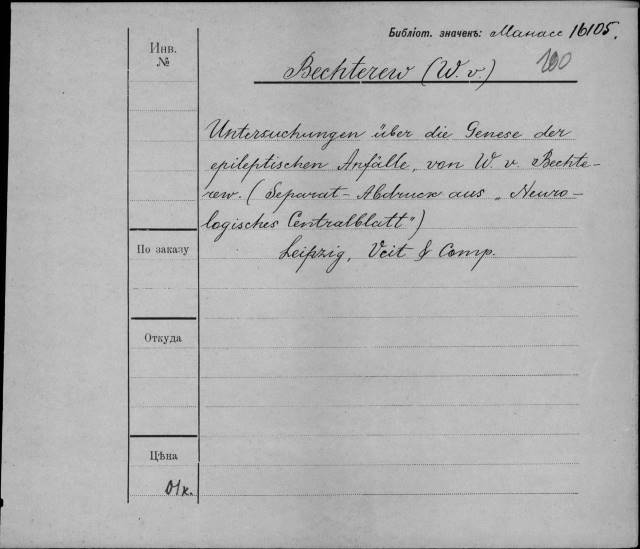 Библіот. значекъ: Манасс 16105.
Инв.
№
Bechterew (W. v.)
Untersuchungen über die Genese der
epileptischen Anfälle, von W. v. Bechte-
rew. (Separat-Abdruck aus „Neuro-
logisches Centralblatt")
Leipzig, Veit & Comp.
По заказу
Откуда
Цѣна
01к.